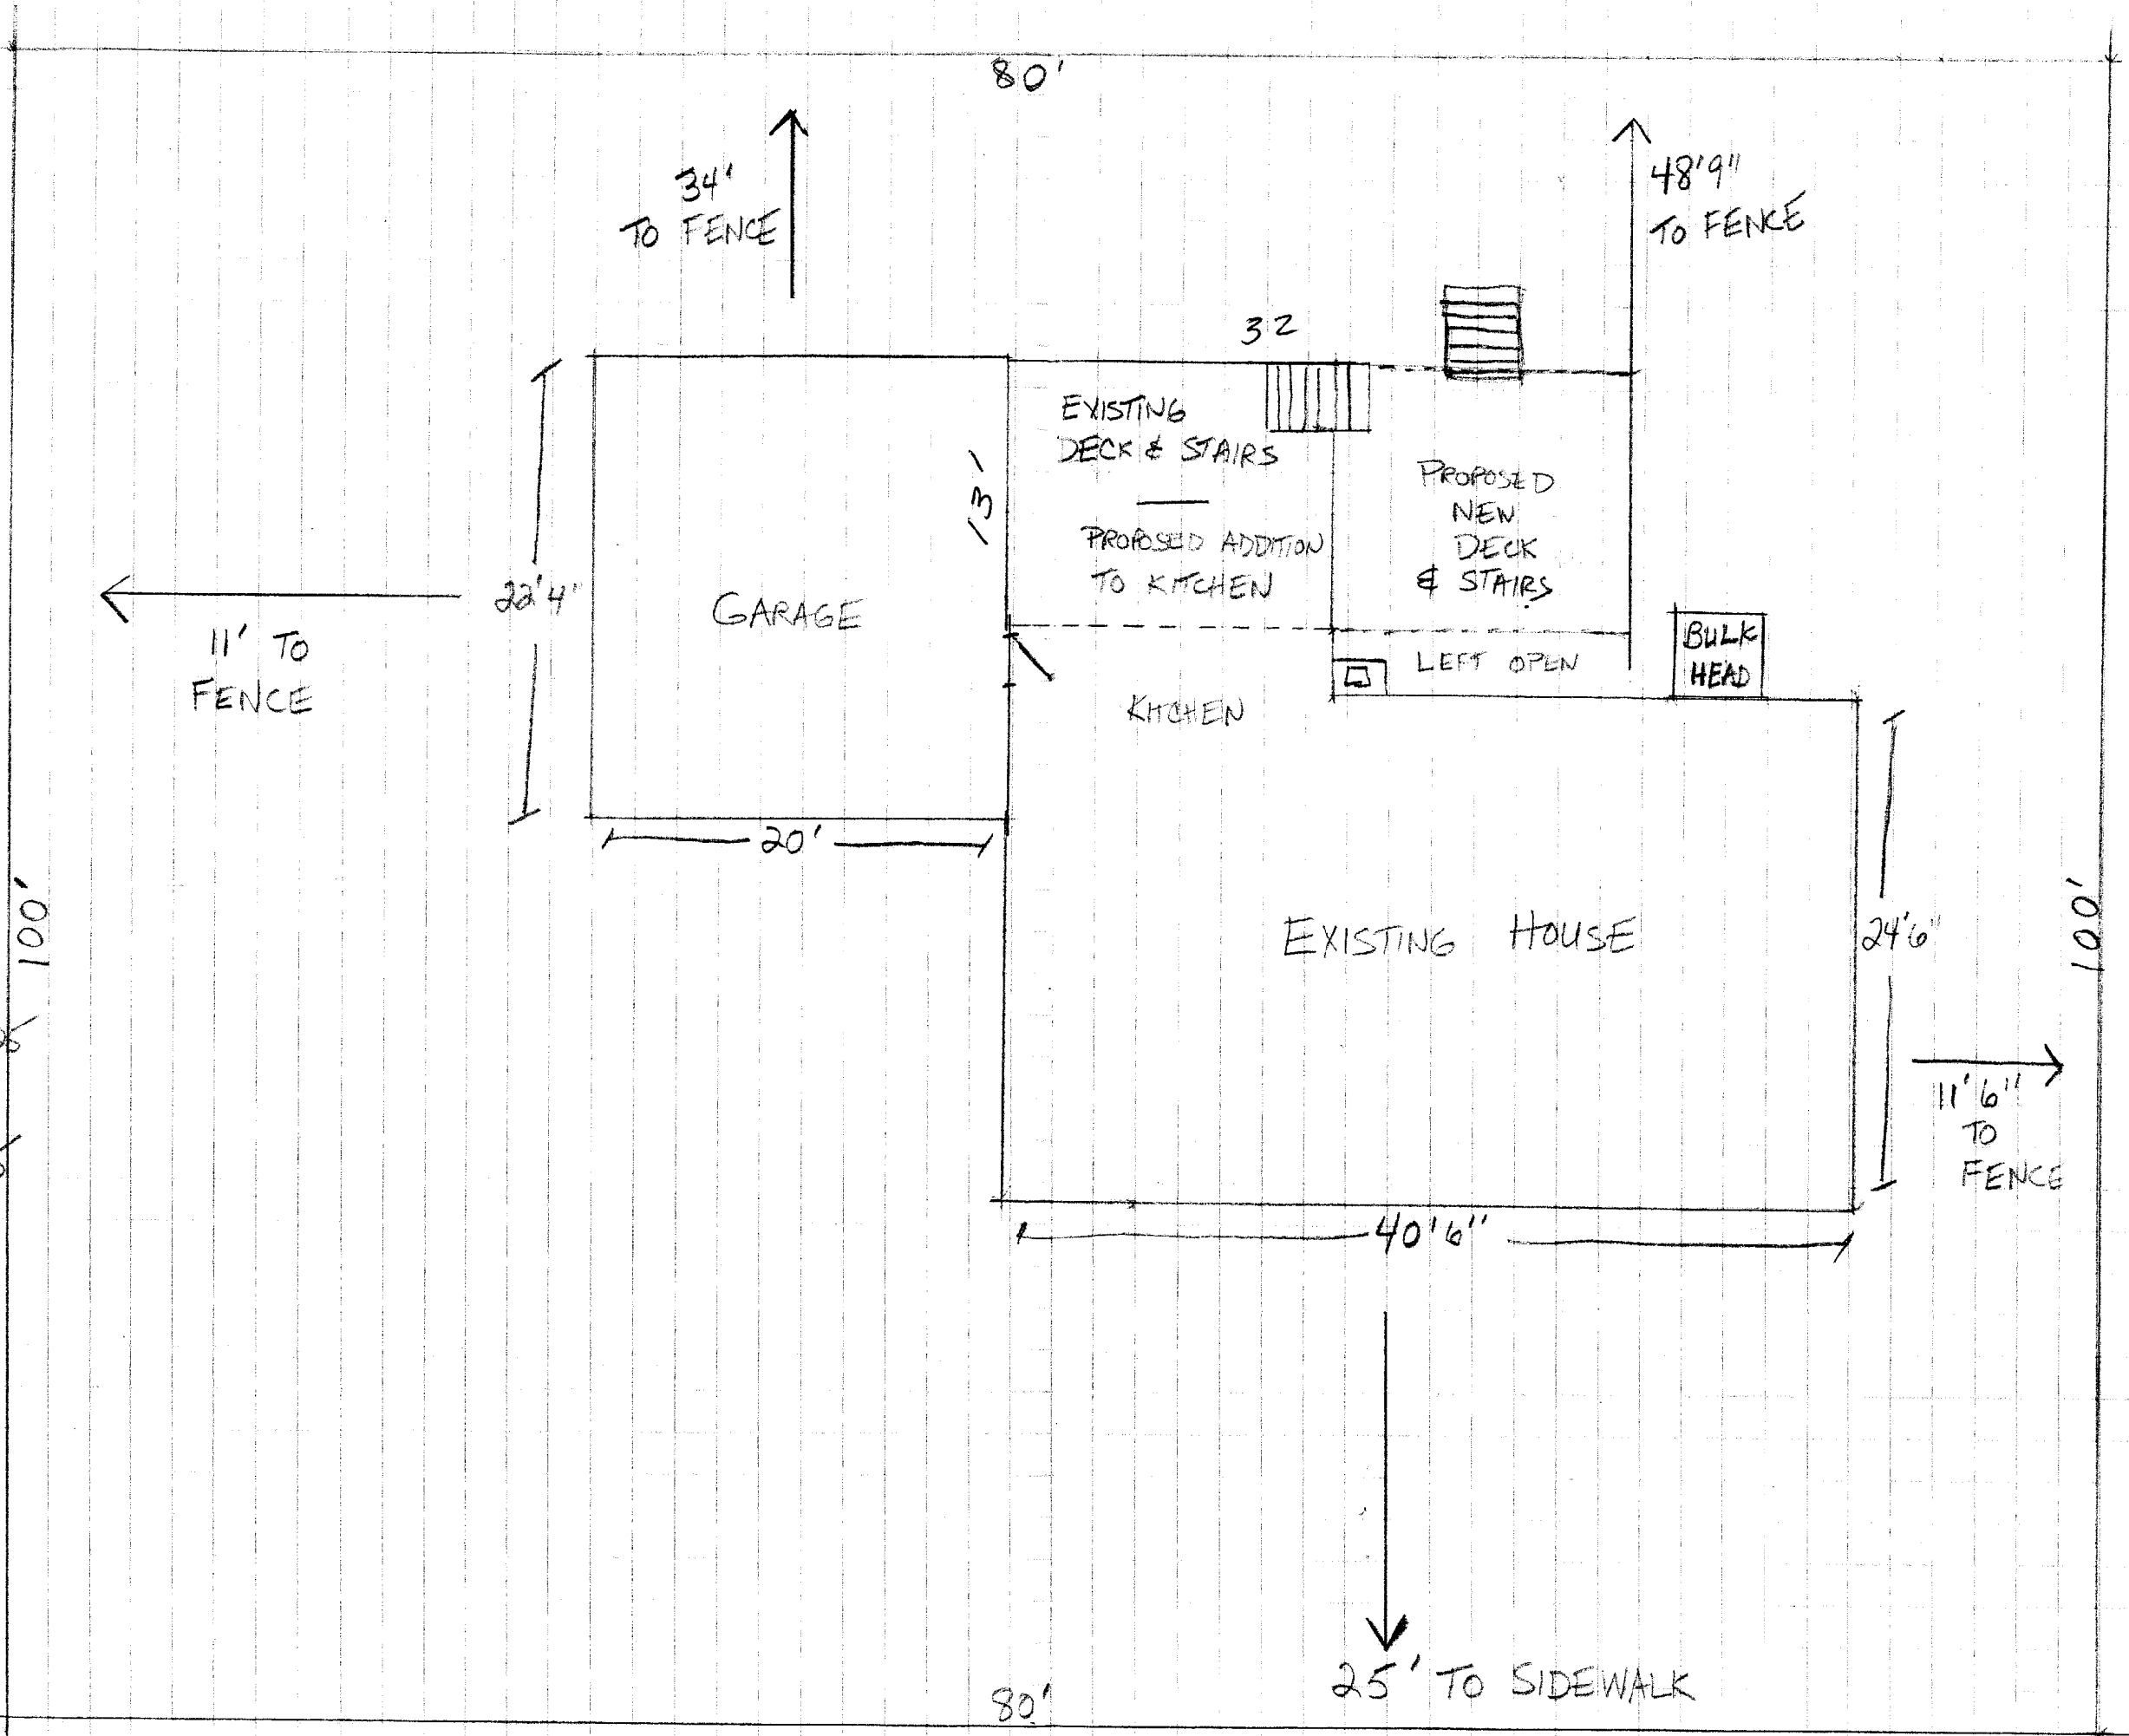 80'
34'
TO FENCE
48'9"
TO FENCE
32
EXISTING
DECK & STAIRS
PROPOSED ADDITION
TO KITCHEN
13'
PROPOSED
NEW
DECK
& STAIRS
22'4"
GARAGE
11' TO
FENCE
BULK
HEAD
LEFT OPEN
KITCHEN
20'
100'
EXISTING HOUSE
24'6"
100'
11'6"
TO
FENCE
40'6"
25' TO SIDEWALK
80'